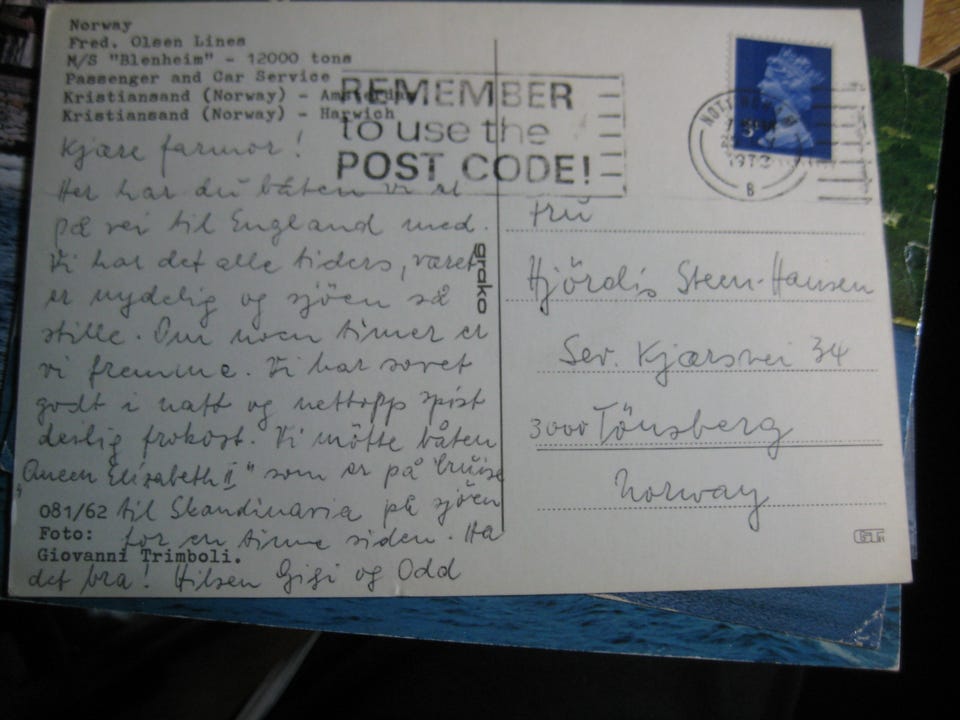 Norway
Fred. Olsen Lines
M/S "Blenheim" - 12000 tons
Passenger and Car Service
Kristiansand (Norway) - Amsterdam
Kristiansand (Norway) - Harwich
REMEMBER
to use the
POST CODE!
1973
B
Kjære farmor!
Her har du båten vi er
på vei til England med.
Vi har det alle tiders, været
er nydelig og sjöen så
stille. Om noen timer er
vi fremme. Vi har sovet
godt i natt og nettopp spist
deilig frokost. Vi mötte båten
"Queen Elisabeth II" som er på cruise
til Skandinavia på sjöen
for en time siden. Ha
det bra! Hilsen Gigi og Odd
081/62
Foto:
Giovanni Trimboli.
grako
Fru
Hjördis Steen-Hansen
Sev. Kjærsvei 34
3000 Tönsberg
Norway